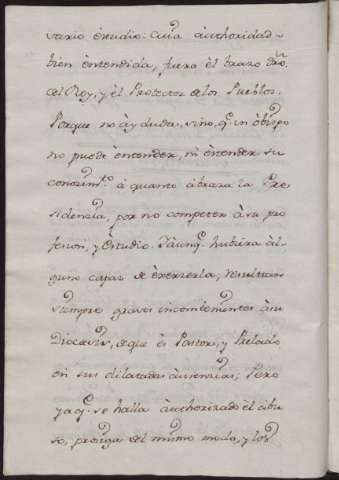 vario estudio. Cuia àuthoridad
bien èntendida, fuera èl brazo dro
del Rey, y èl Protector de los Pueblos.
Porque no ày duda, sino, q.e un obispo
no puede èntender, ni èstender su
conozim.to à quanto àbraza la Pre
sidenzia, por no competer à su pro
fesion, y èstudio. Y àunq.e hubiera àl-
guno capaz de èxerzerla, resultan
siempre graves incombenientes à su
Diocesis, de que ès Pastor, y Prelado
èn sus dilatadas àusenzias; Pero
ya q.e se halla àuthorizado èl abu
so, prosiga del mismo modo, y los